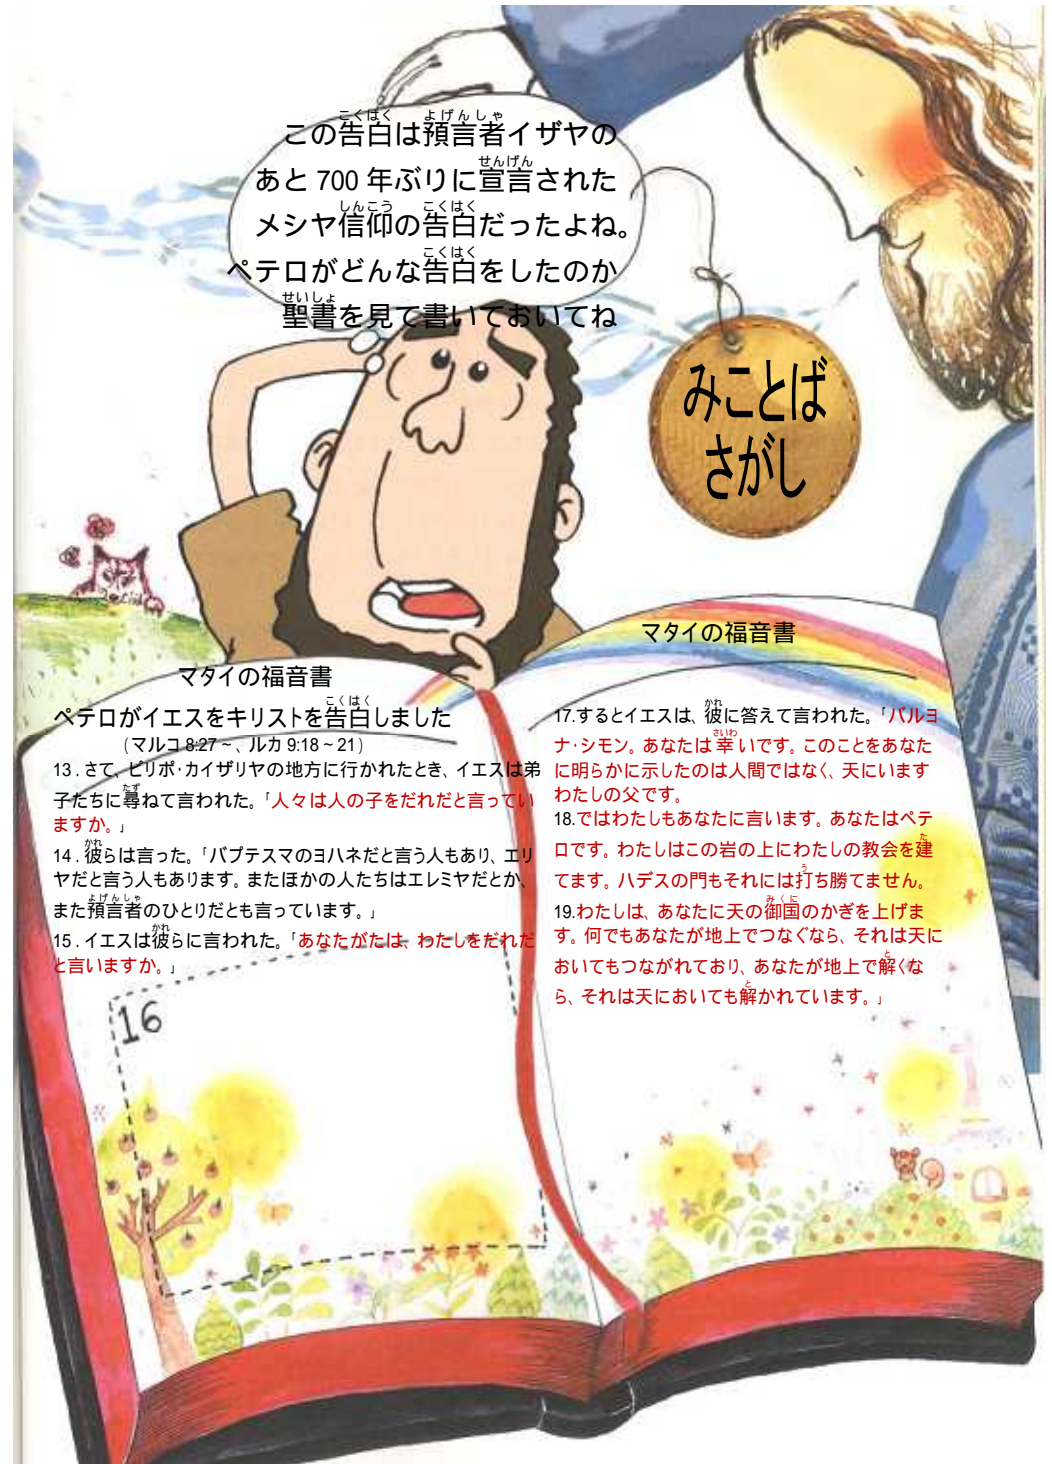 この告白は預言者イザヤの
あと 700 年ぶりに宣言された
メシヤ信仰の告白だったよね。
ペテロがどんな告白をしたのか
聖書を見て書いておいてね
みことば
さがし
マタイの福音書
ペテロがイエスをキリストを告白しました
(マルコ 8:27~、ルカ 9:18~21)
13.さて、ピリポ・カイザリヤの地方に行かれたとき、イエスは弟
子たちに尋ねて言われた。「人々は人の子をだれだと言ってい
ますか。」
14.彼らは言った。「バプテスマのヨハネだと言う人もあり、エリ
ヤだと言う人もあります。またほかの人たちはエレミヤだとか、
また預言者のひとりだとも言っています。」
15.イエスは彼らに言われた。「あなたがたは、わたしをだれだ
と言いますか。」
16
マタイの福音書
17.するとイエスは、彼に答えて言われた。「バルヨ
ナ・シモン。あなたは幸いです。このことをあなた
に明らかに示したのは人間ではなく、天にいます
わたしの父です。
18.ではわたしもあなたに言います。あなたはペテ
ロです。わたしはこの岩の上にわたしの教会を建
てます。ハデスの門もそれには打ち勝てません。
19.わたしは、あなたに天の御国のかぎを上げま
す。何でもあなたが地上でつなぐなら、それは天に
おいてもつながれており、あなたが地上で解くな
ら、それは天においても解かれています。」